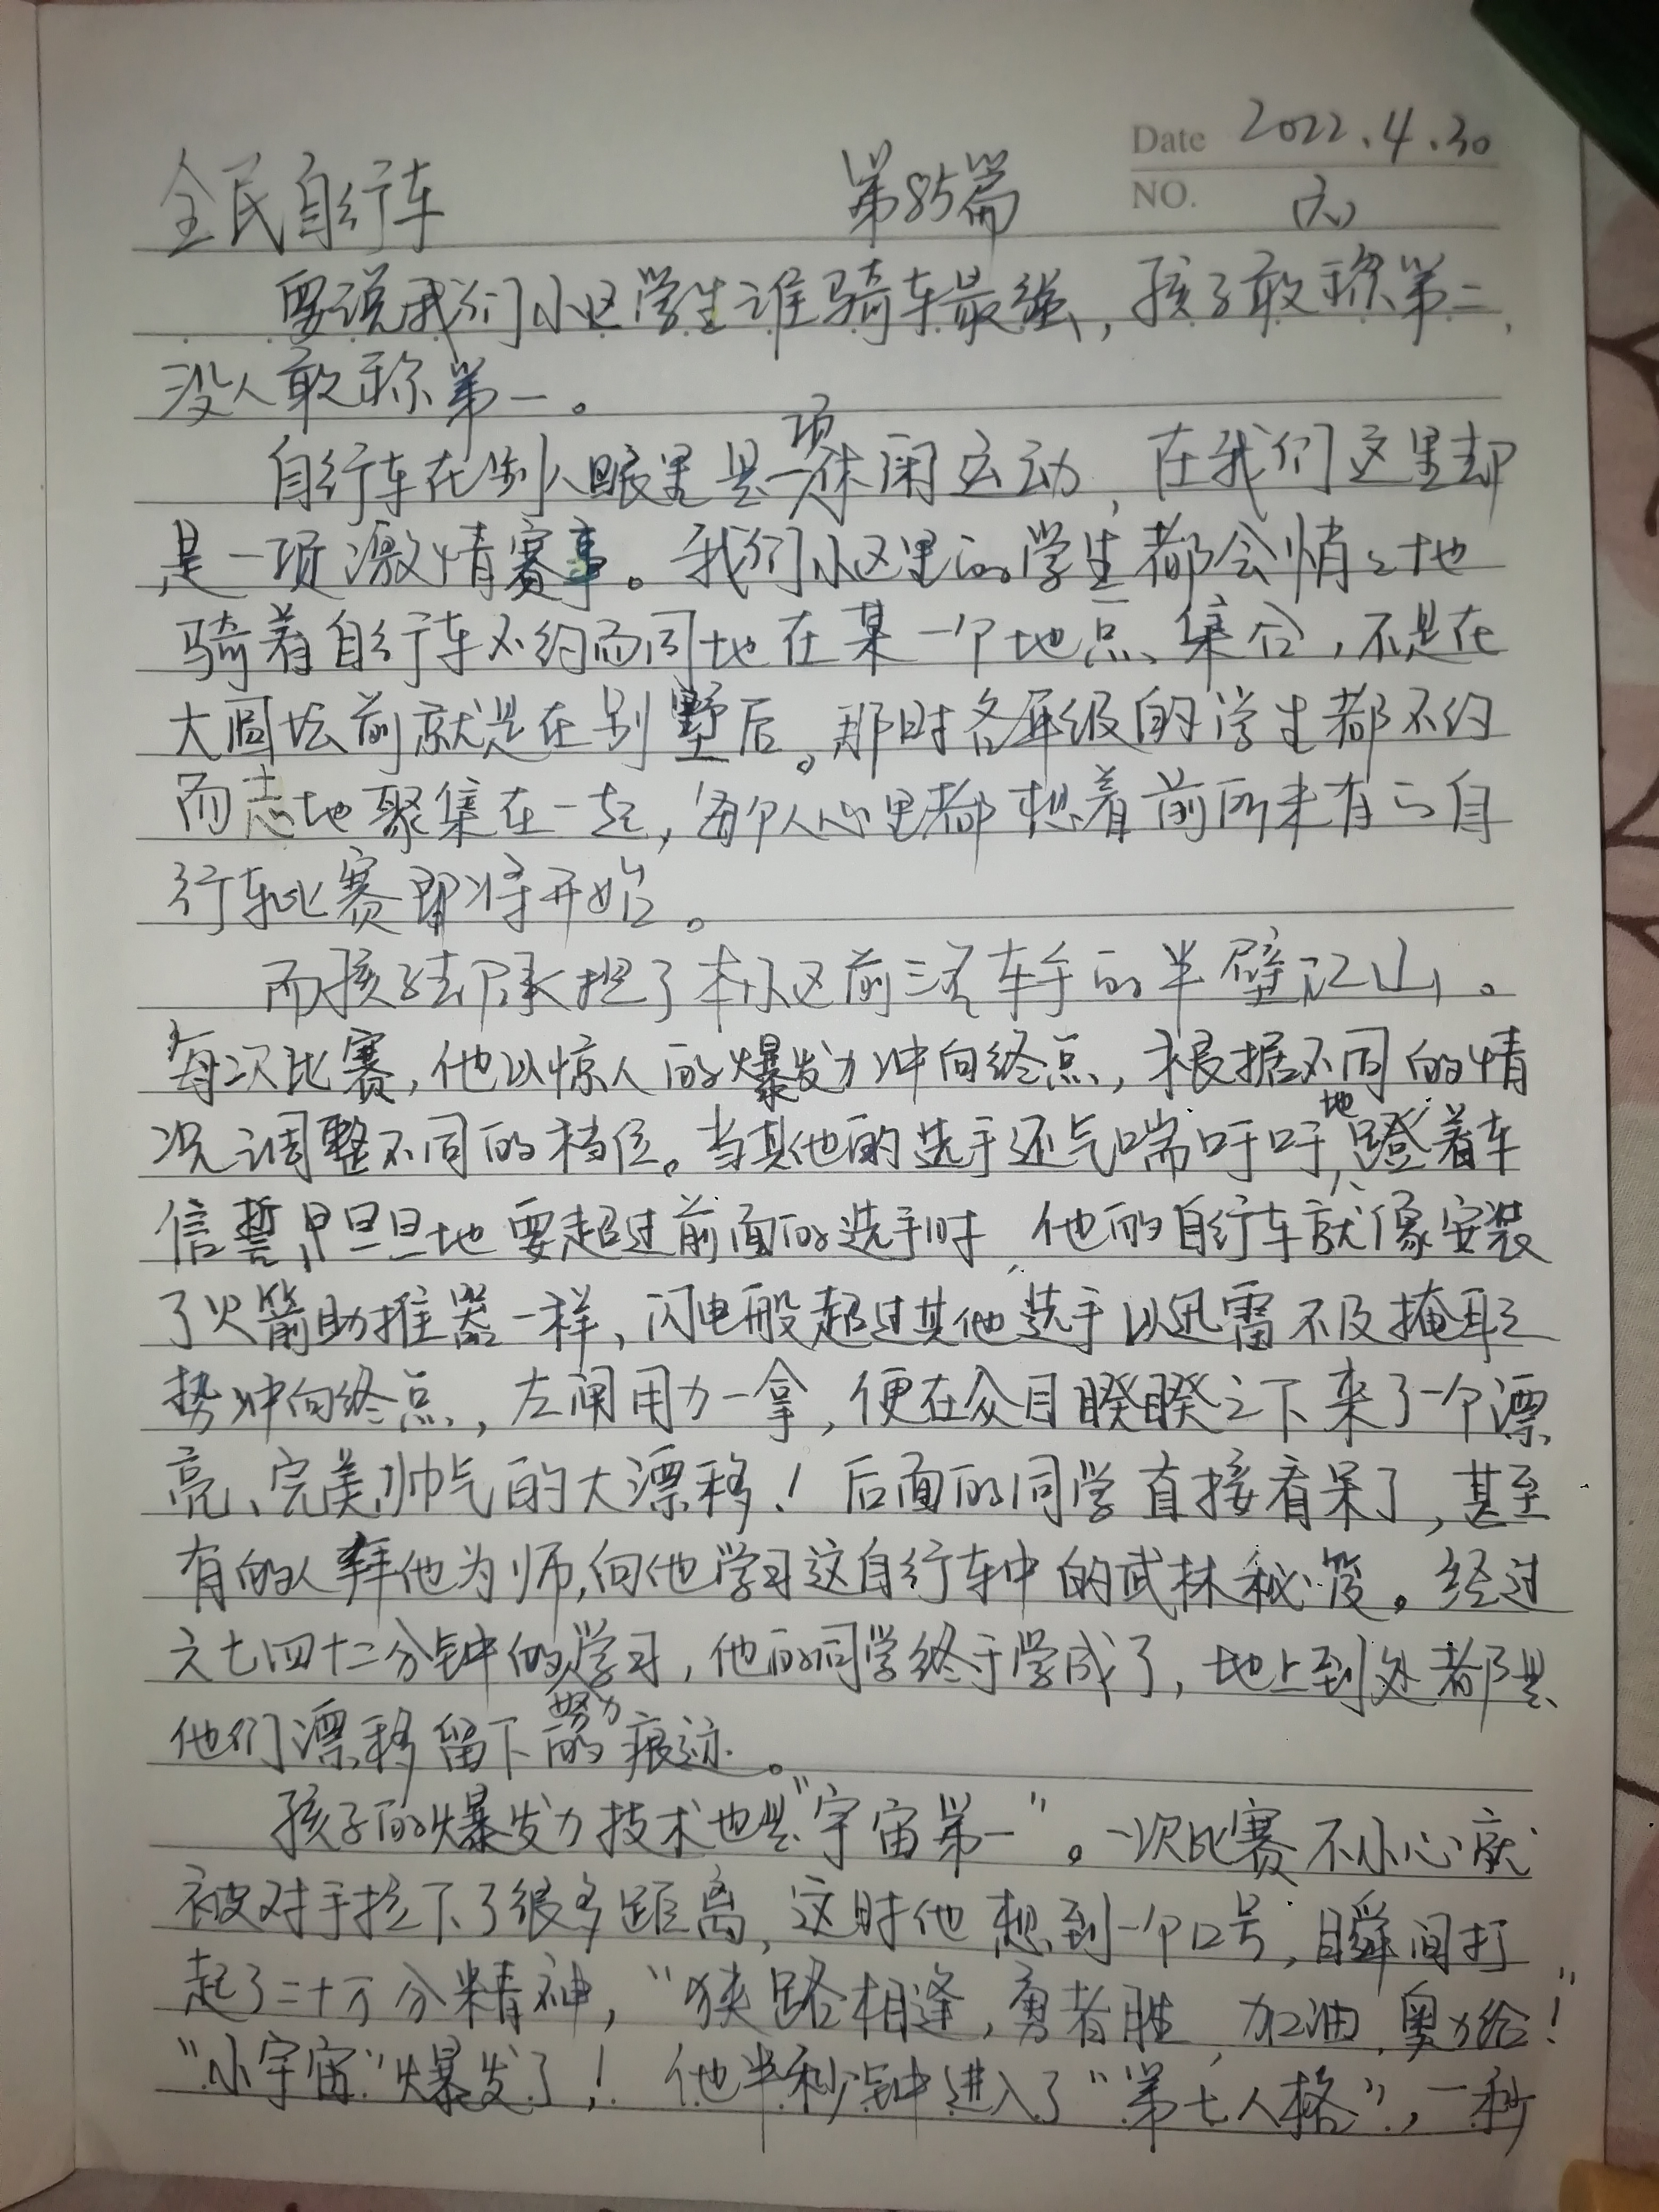 Date 2022.4.30
全民自行车 第85篇 NO. (六)
要说我们小区学生谁骑车最强，孩子敢称第二，
没人敢称第一。
自行车在别人眼里是一项休闲运动，在我们这里却
是一项激情赛事。我们小区里的学生都会悄々地
骑着自行车不约而同地在某一个地点集合，不是在
大圆坛前就是在别墅后。那时各年级的学生都不约
而志地聚集在一起，每个人心里都想着前所未有的自
行车比赛即将开始。
而孩子却承担了本小区前三名车手的半壁江山。
每次比赛，他以惊人的爆发力冲向终点，根据不同的情
况调整不同的档位。当其他的选手还气喘吁吁地蹬着车，
信誓旦旦地要超过前面的选手时，他的自行车就像安装
了火箭助推器一样，闪电般超过其他选手以迅雷不及掩耳之
势冲向终点，左闸用力一拿，便在众目睽睽之下来了一个漂
亮、完美、帅气的大漂移！后面的同学直接看呆了，甚至
有的人拜他为师，向他学习这自行车中的武林秘笈。经过
六七四十二分钟的学习，他的同学终于学成了，地上到处都是
他们漂移留下的努力痕迹。
孩子的爆发力技术也是“宇宙第一”。一次比赛不小心就
被对手拉下了很多距离，这时他想到一个口号，瞬间打
起了二十万分精神，“狭路相逢，勇者胜，加油，奥力给！”
“小宇宙”爆发了！他半秒钟进入了“第七人格”，一秒